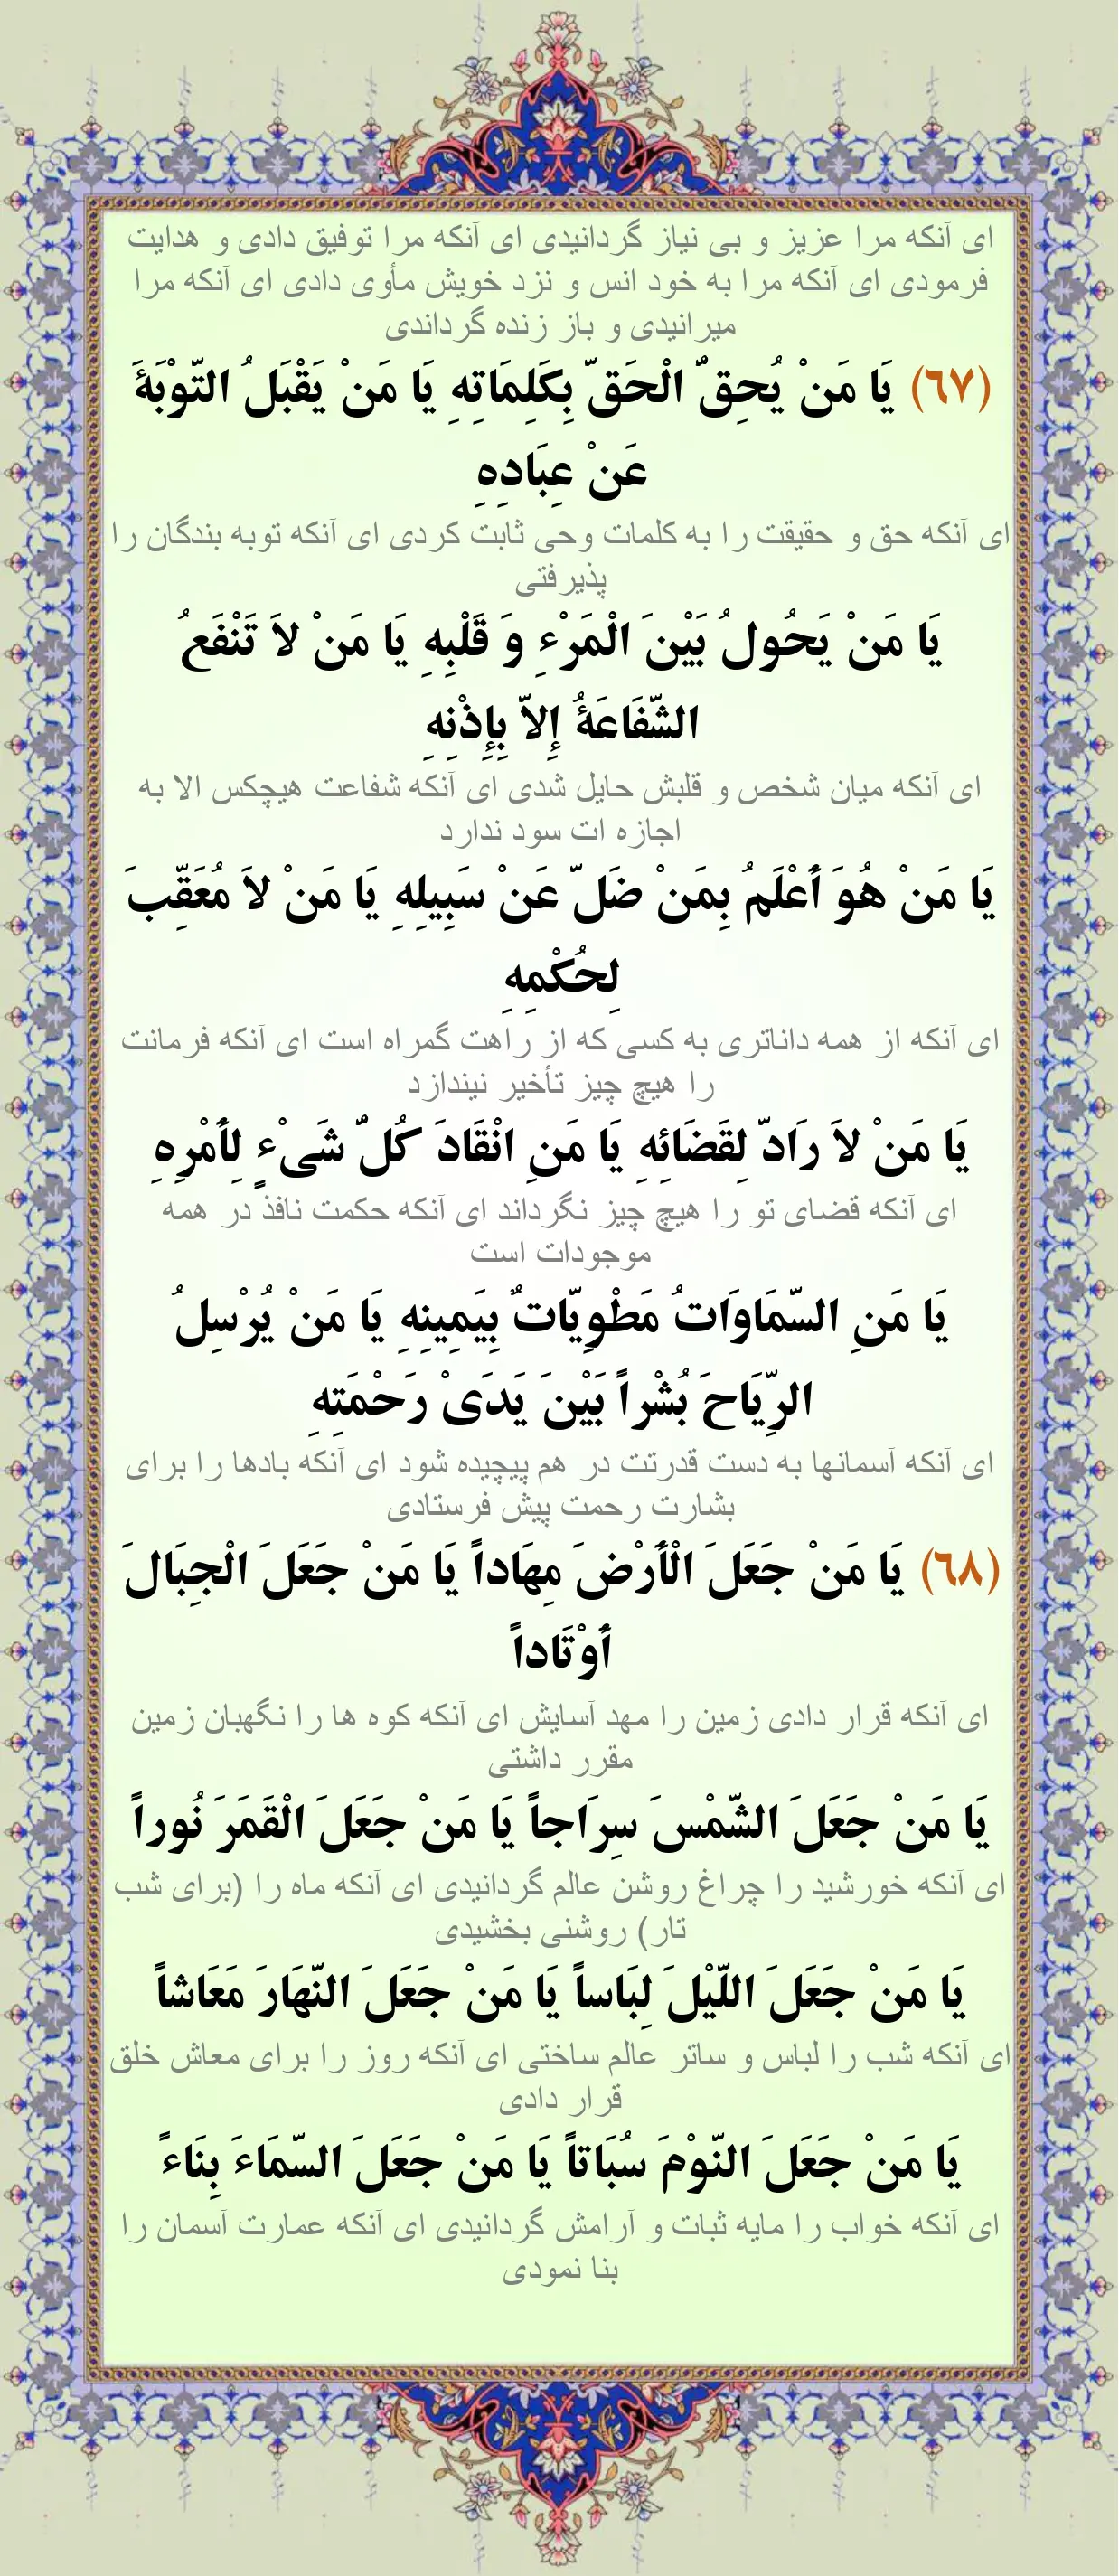 ای آنکه مرا عزیز و بی نیاز گردانیدی ای آنکه مرا توفیق دادی و هدایت
فرمودی ای آنکه مرا به خود انس و نزد خویش مأوی دادی ای آنکه مرا
میرانیدی و باز زنده گرداندی
(٦٧) يَا مَنْ يُحِقُّ الْحَقَّ بِكَلِمَاتِهِ يَا مَنْ يَقْبَلُ التَّوْبَةَ
عَنْ عِبَادِهِ
ای آنکه حق و حقیقت را به کلمات وحی ثابت کردی ای آنکه توبه بندگان را
پذیرفتی
يَا مَنْ يَحُولُ بَيْنَ الْمَرْءِ وَ قَلْبِهِ يَا مَنْ لاَ تَنْفَعُ
الشَّفَاعَةُ إِلاَّ بِإِذْنِهِ
ای آنکه میان شخص و قلبش حایل شدی ای آنکه شفاعت هیچکس الا به
اجازه ات سود ندارد
يَا مَنْ هُوَ أَعْلَمُ بِمَنْ ضَلَّ عَنْ سَبِيلِهِ يَا مَنْ لاَ مُعَقِّبَ
لِحُكْمِهِ
ای آنکه از همه داناتری به کسی که از راهت گمراه است ای آنکه فرمانت
را هیچ چیز تأخیر نیندازد
يَا مَنْ لاَ رَادَّ لِقَضَائِهِ يَا مَنِ انْقَادَ كُلُّ شَيْءٍ لِأَمْرِهِ
ای آنکه قضای تو را هیچ چیز نگرداند ای آنکه حکمت نافذ در همه
موجودات است
يَا مَنِ السَّمَاوَاتُ مَطْوِيَّاتٌ بِيَمِينِهِ يَا مَنْ يُرْسِلُ
الرِّيَاحَ بُشْراً بَيْنَ يَدَيْ رَحْمَتِهِ
ای آنکه آسمانها به دست قدرتت در هم پیچیده شود ای آنکه بادها را برای
بشارت رحمت پیش فرستادی
(٦٨) يَا مَنْ جَعَلَ الْأَرْضَ مِهَاداً يَا مَنْ جَعَلَ الْجِبَالَ
أَوْتَاداً
ای آنکه قرار دادی زمین را مهد آسایش ای آنکه کوه ها را نگهبان زمین
مقرر داشتی
يَا مَنْ جَعَلَ الشَّمْسَ سِرَاجاً يَا مَنْ جَعَلَ الْقَمَرَ نُوراً
ای آنکه خورشید را چراغ روشن عالم گردانیدی ای آنکه ماه را (برای شب
تار) روشنی بخشیدی
يَا مَنْ جَعَلَ اللَّيْلَ لِبَاساً يَا مَنْ جَعَلَ النَّهَارَ مَعَاشاً
ای آنکه شب را لباس و ساتر عالم ساختی ای آنکه روز را برای معاش خلق
قرار دادی
يَا مَنْ جَعَلَ النَّوْمَ سُبَاتاً يَا مَنْ جَعَلَ السَّمَاءَ بِنَاءً
ای آنکه خواب را مایه ثبات و آرامش گردانیدی ای آنکه عمارت آسمان را
بنا نمودی